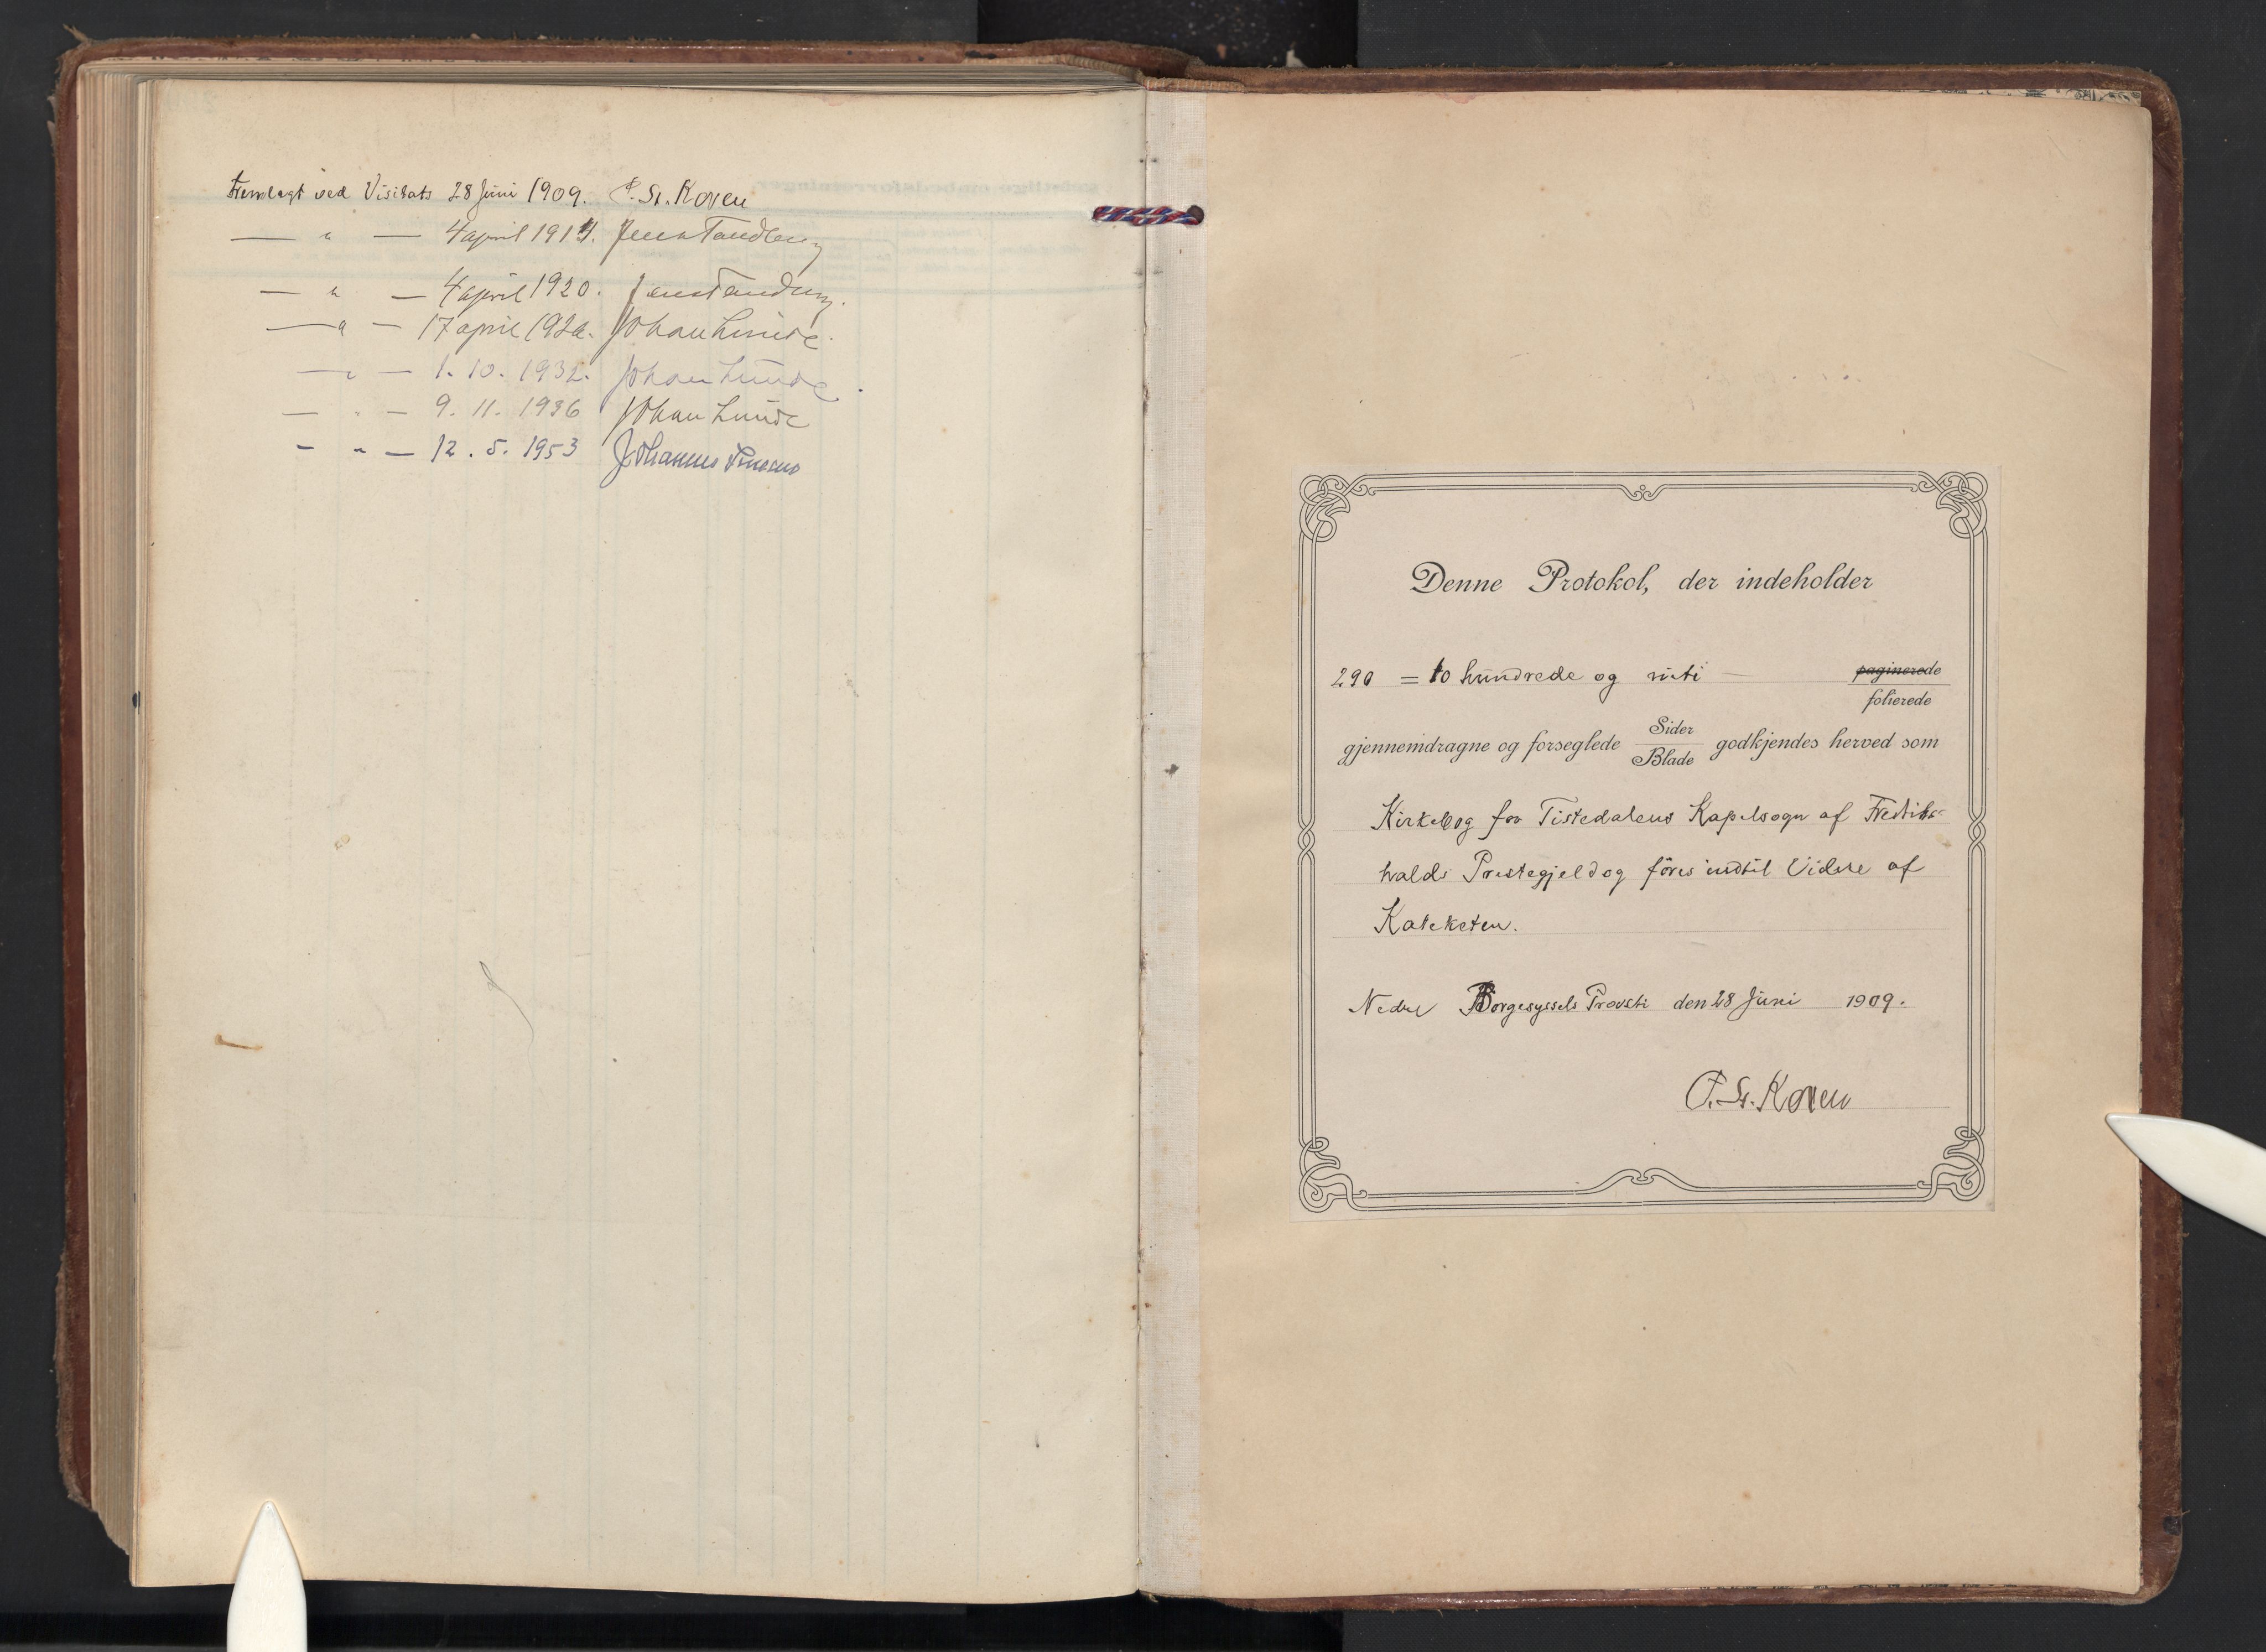 Fremlagt ved Visitats 28 Juni 1909. P. St. Koren
— " — 4 april 1914. Jens Tandberg
— " — 4 april 1920. Jens Tandberg.
— " — 17 april 1926. Johan Lunde.
— " — 1. 10. 1932. Johan Lunde.
— " — 9. 11. 1936 Johan Lunde
— " — 12. 5. 1953 Johannes Smemo
Denne Protokol, der indeholder
290 = to hundrede og niti — paginerede
folierede
gjennemdragne og forseglede Sider
Blade godkjendes herved som
Kirkebog for Tistedalens Kapelsogn af Fredriks-
halds Prestegjeld og føres indtil Videre af
Kateketen.
Nedre Borgesyssels Provsti den 28 Juni 1909.
P. St. Koren